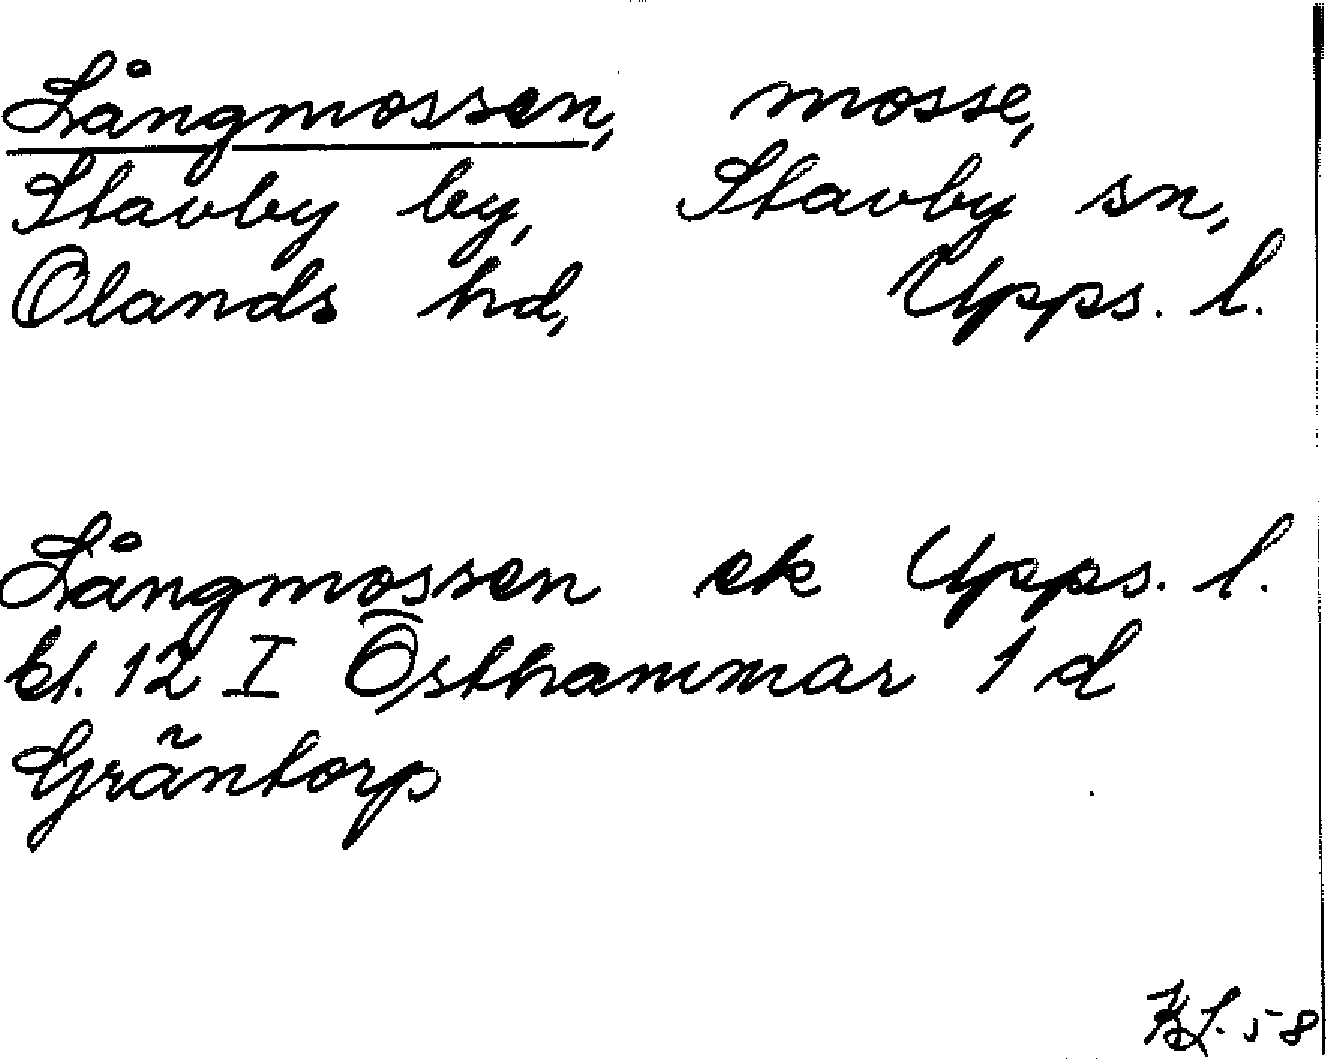 Långmossen, mosse,
Stavby by, Stavby sn,
Olands hd, Upps. l.
Långmossen ek Upps. l.
bl. 12 I Östhammar 1 d
Gräntorp
58